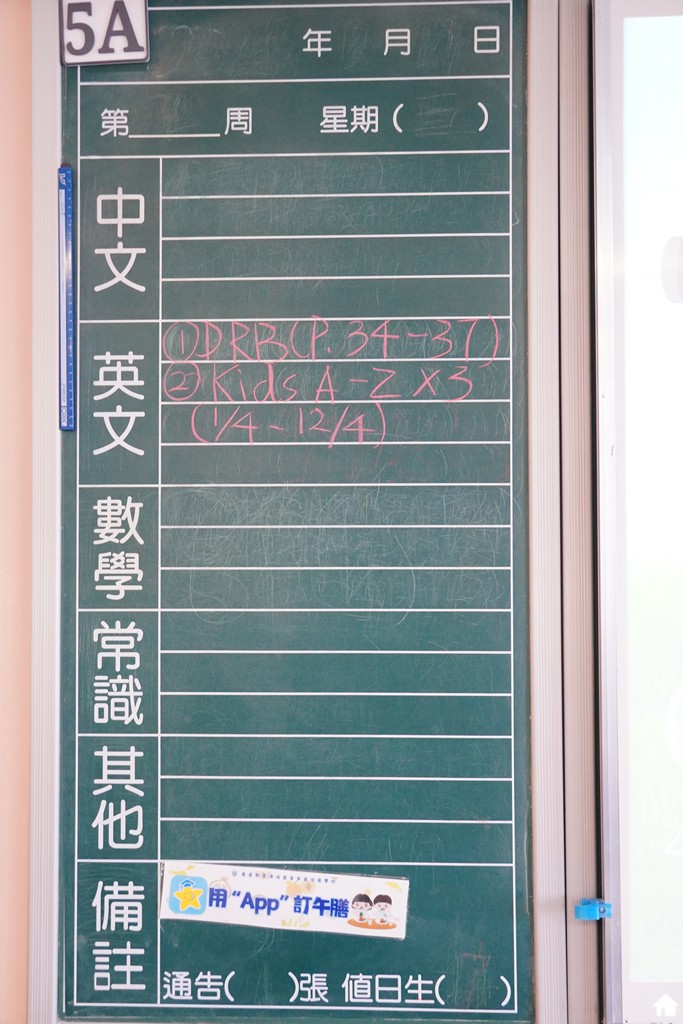 5A
年 月 日
第 周 星期( )
中文
英文
①DRB(P.34-37)
②Kids A-Z x3
(1/4-12/4)
數學
常識
其他
備註
用“App”訂午膳
通告( )張 值日生( )